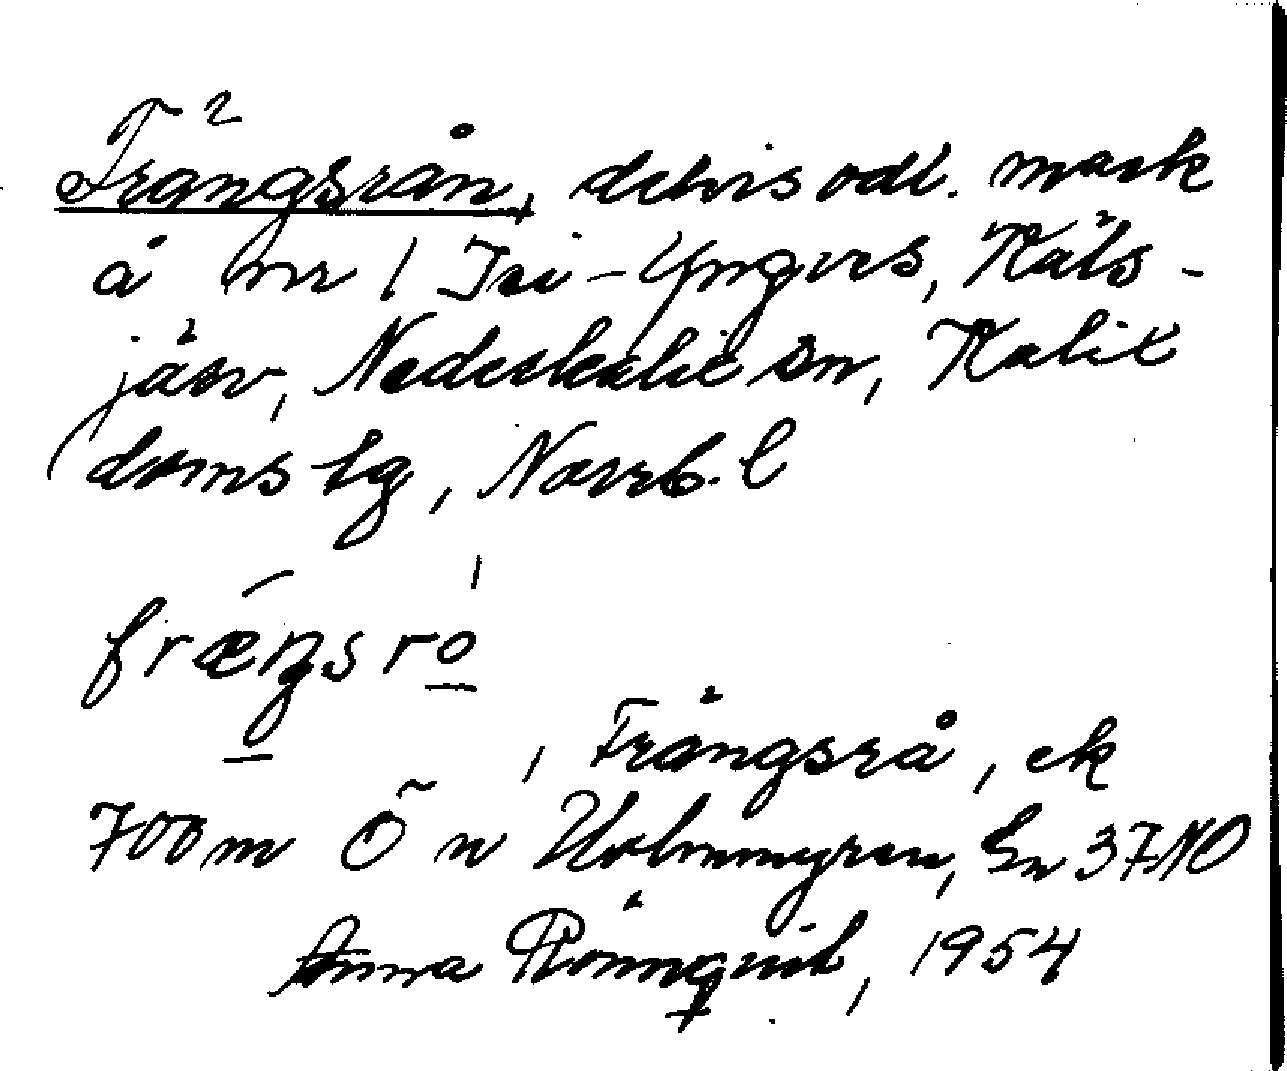 Frängsrån, delvis odl. mark
å mr 1 Isi-Yngves, Räls-
järv, Nederkalix sn, Kalix
domslg, Norrb. l
frængsro
, Frängsrå, ek
700 m Ö n Holmmyren, En 37 NO
Anna Rönnqvist, 1954